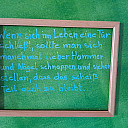 Wenn sich im Leben eine Tür
schließt, sollte man sich
manchmal lieber Hammer
und Nägel schnappen und sicher-
stellen, dass das scheiß
Teil auch zu bleibt.